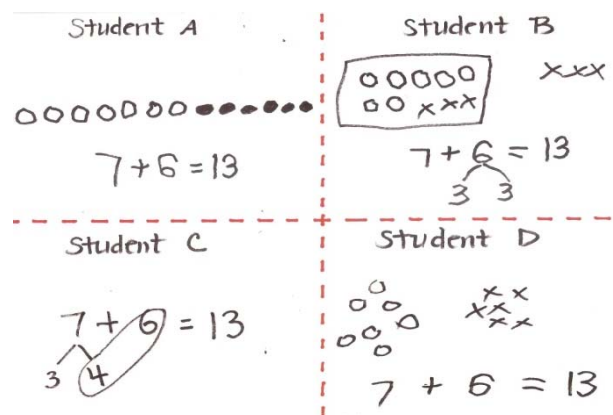 Student A
7 + 6 = 13
Student B
xxx
xxx
7 + 6 = 13
3 3
Student C
7 + 6 = 13
3 4
Student D
xx
xxx
xx
7 + 6 = 13